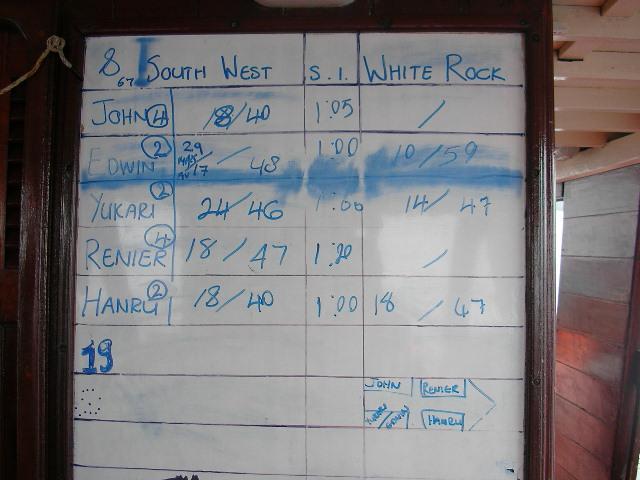 8 SOUTH WEST S.I. WHITE ROCK
67
JOHN 4 18/40 1:05 /
EDWIN 2 29 / 48 1:00 10/59
17
YUKARI 2 24/46 1:00 14/ 47
RENIER 4 18/47 1:20 /
HANRU 2 18/40 1:00 18/47
19
JOHN RENIER
YUKARI EDWIN HANRU